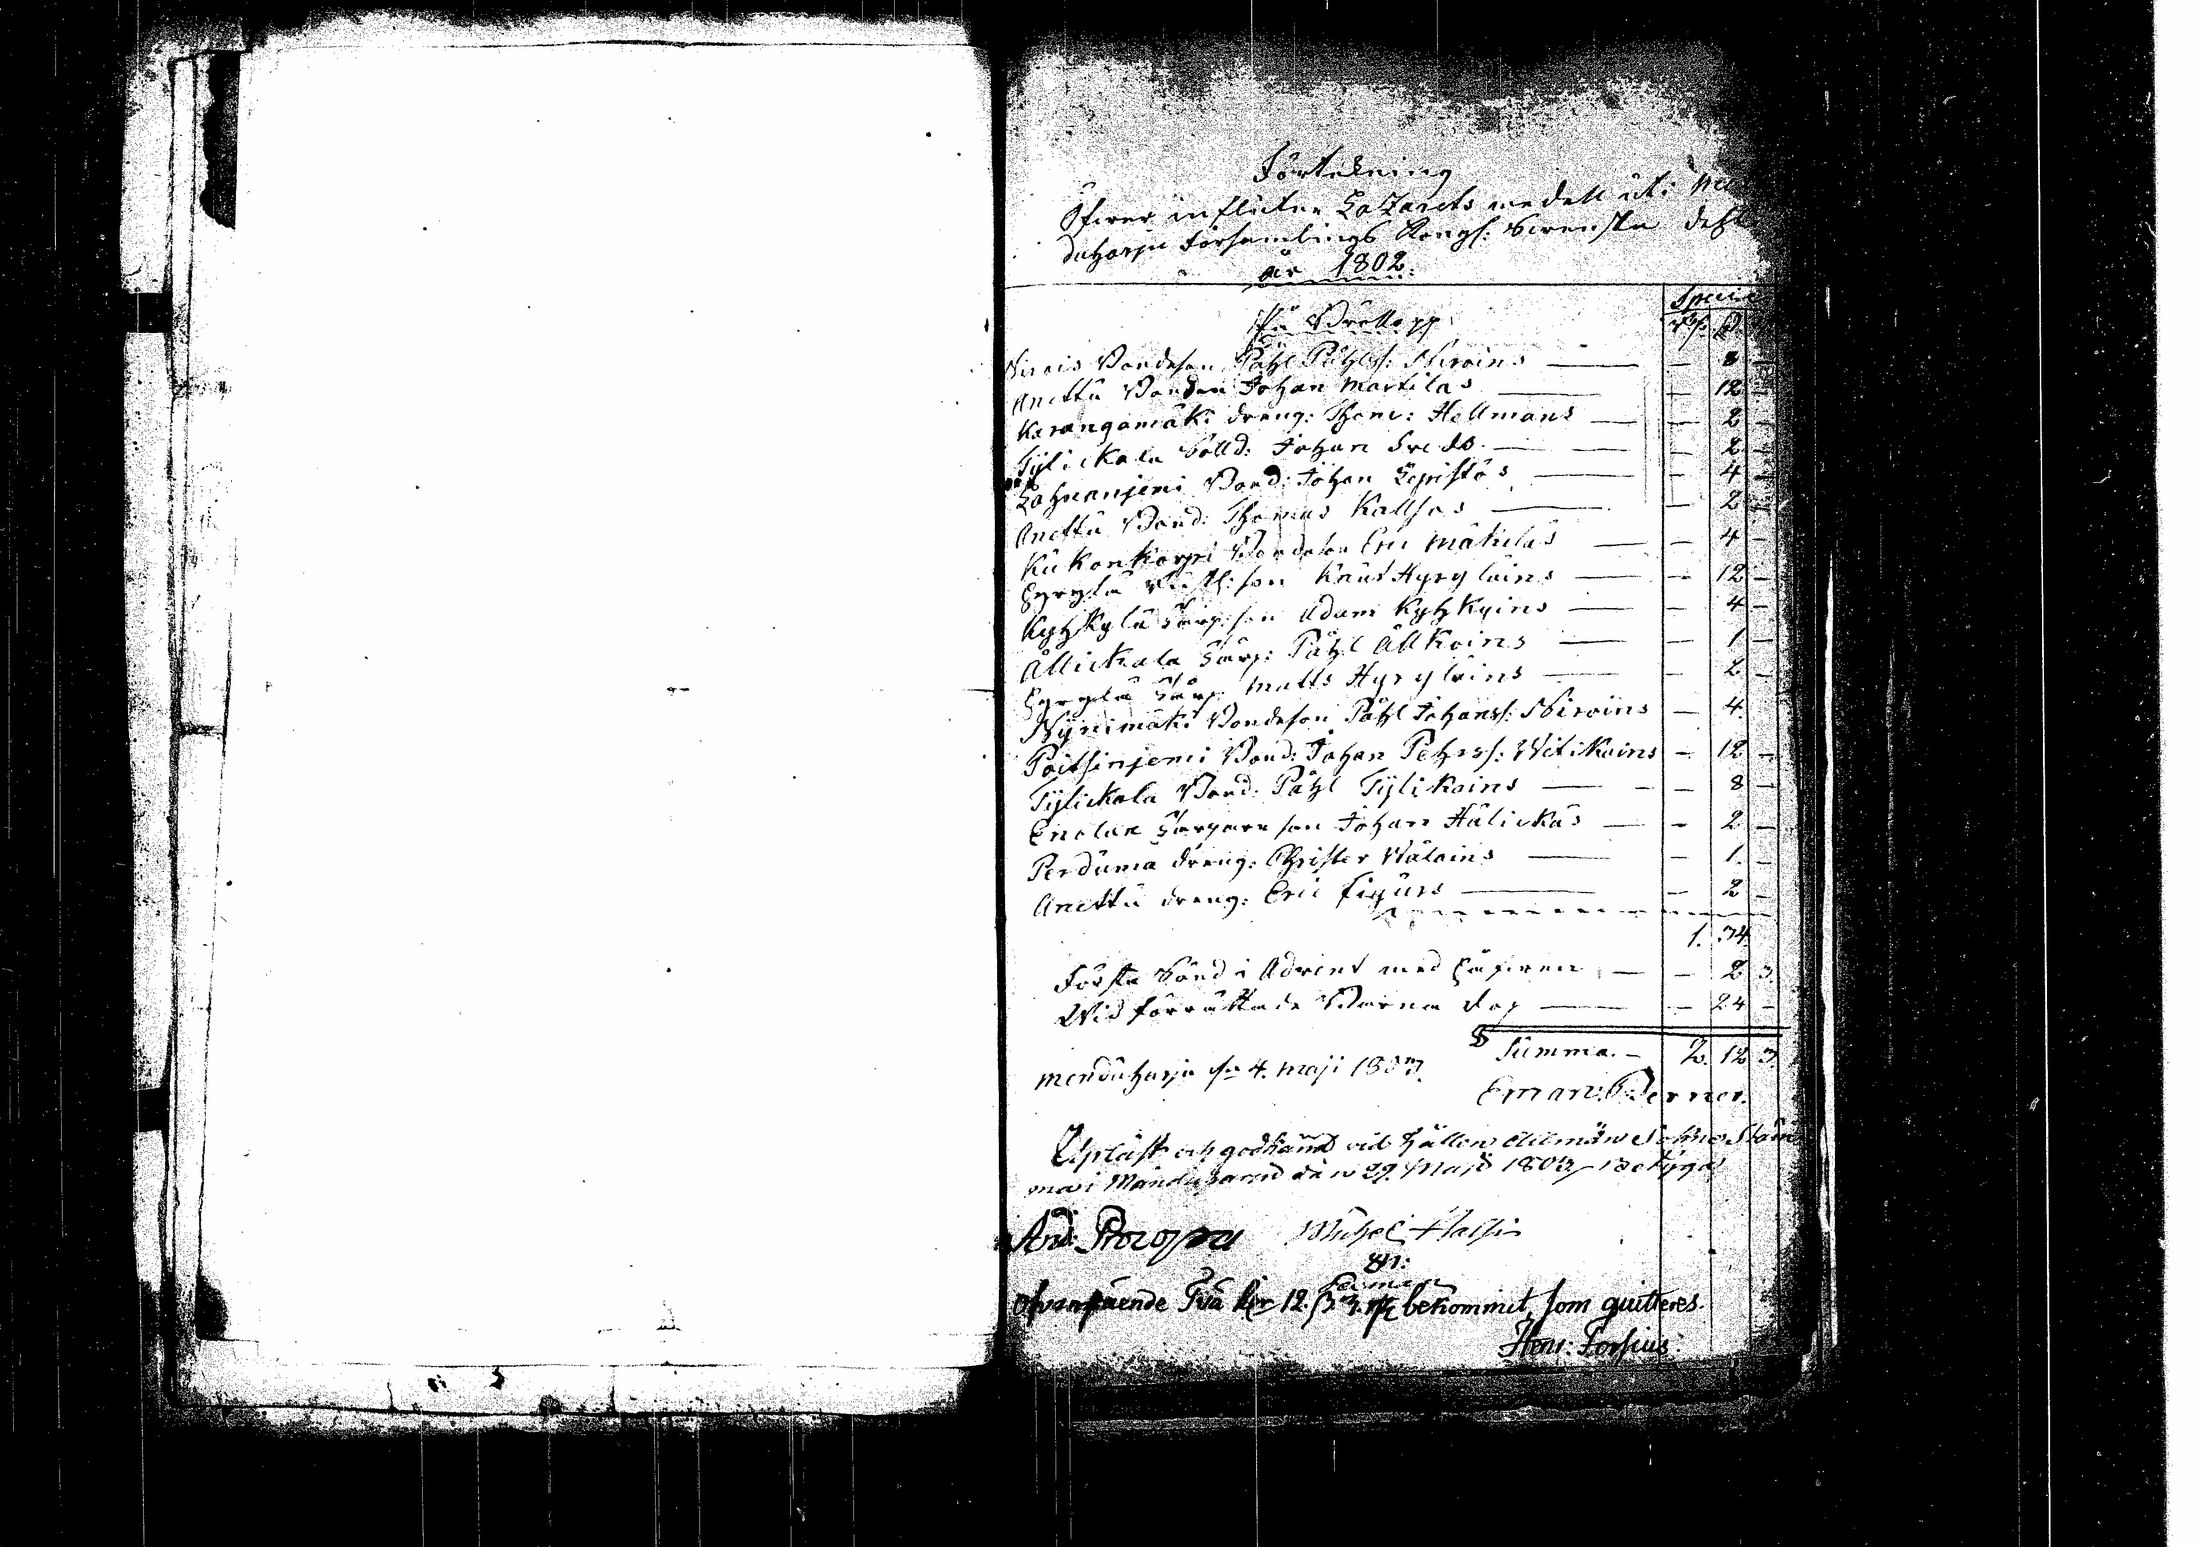 Förtekning
Öfwer inflútne Lazarets medell uti Men
duharju Församlings Kongl: Svenska dehl
år 1802.
Specie
På Bröllopp
Rdr. ß.
Nirois Bondeson Påhl Påhlss: Niroins — — 8 —
Anettu Bonden Johan Martilas — — 12 —
Karangamäki dreng: Thom: Hellmans — — 2 —
Tylickala Solld: Johan — — 2 —
Lahnanjemi Bond: Johan Lepistös — — 4 —
Anettu Bond: Thomas Kallsos — — 2 —
Kukonkorpi Bondeson Eric Matulas — — 4 —
Hyrylä son Knut Hyryläins — — 12 —
Kyhkylä Torp: son Adam Kyhkyins — — 4 —
Allickala Torp: Påhl Allkoins — — 1 —
Hyrylä Torp: Matts Hyryläins — — 2 —
Nynimäki Bondeson Påhl Johanss: Niroins — 4. —
Poitsinjemi Bond: Johan Pehrss: Witikoins — 12 —
Tylickala Bond: Påhl Tylikoins — — 8 —
Enolan Torparen son Johan Hulickas — — 2 —
Perduma dreng: Christer Wäloins — — 1. —
Anettu dreng: Eric Figurs — — 2 —
1. 34.
Första Sönd i Advent med Håfwen — — 2 3.
Wid förrättade Barna dop — — 24 —
Summa — 2. 12 3.
Menduharju d: 4. Maji 1803.
Eman: Berner.
Upläst och godkänd vid hållen allmän Sokne Stäm
ma i Mänduharju den 29. Maji 1803, betygas
And: Michel Halsin
Ofvanstående Två Rdr 12. ß 3. rst bekommit, som quitteres.
Henr: Forsius.